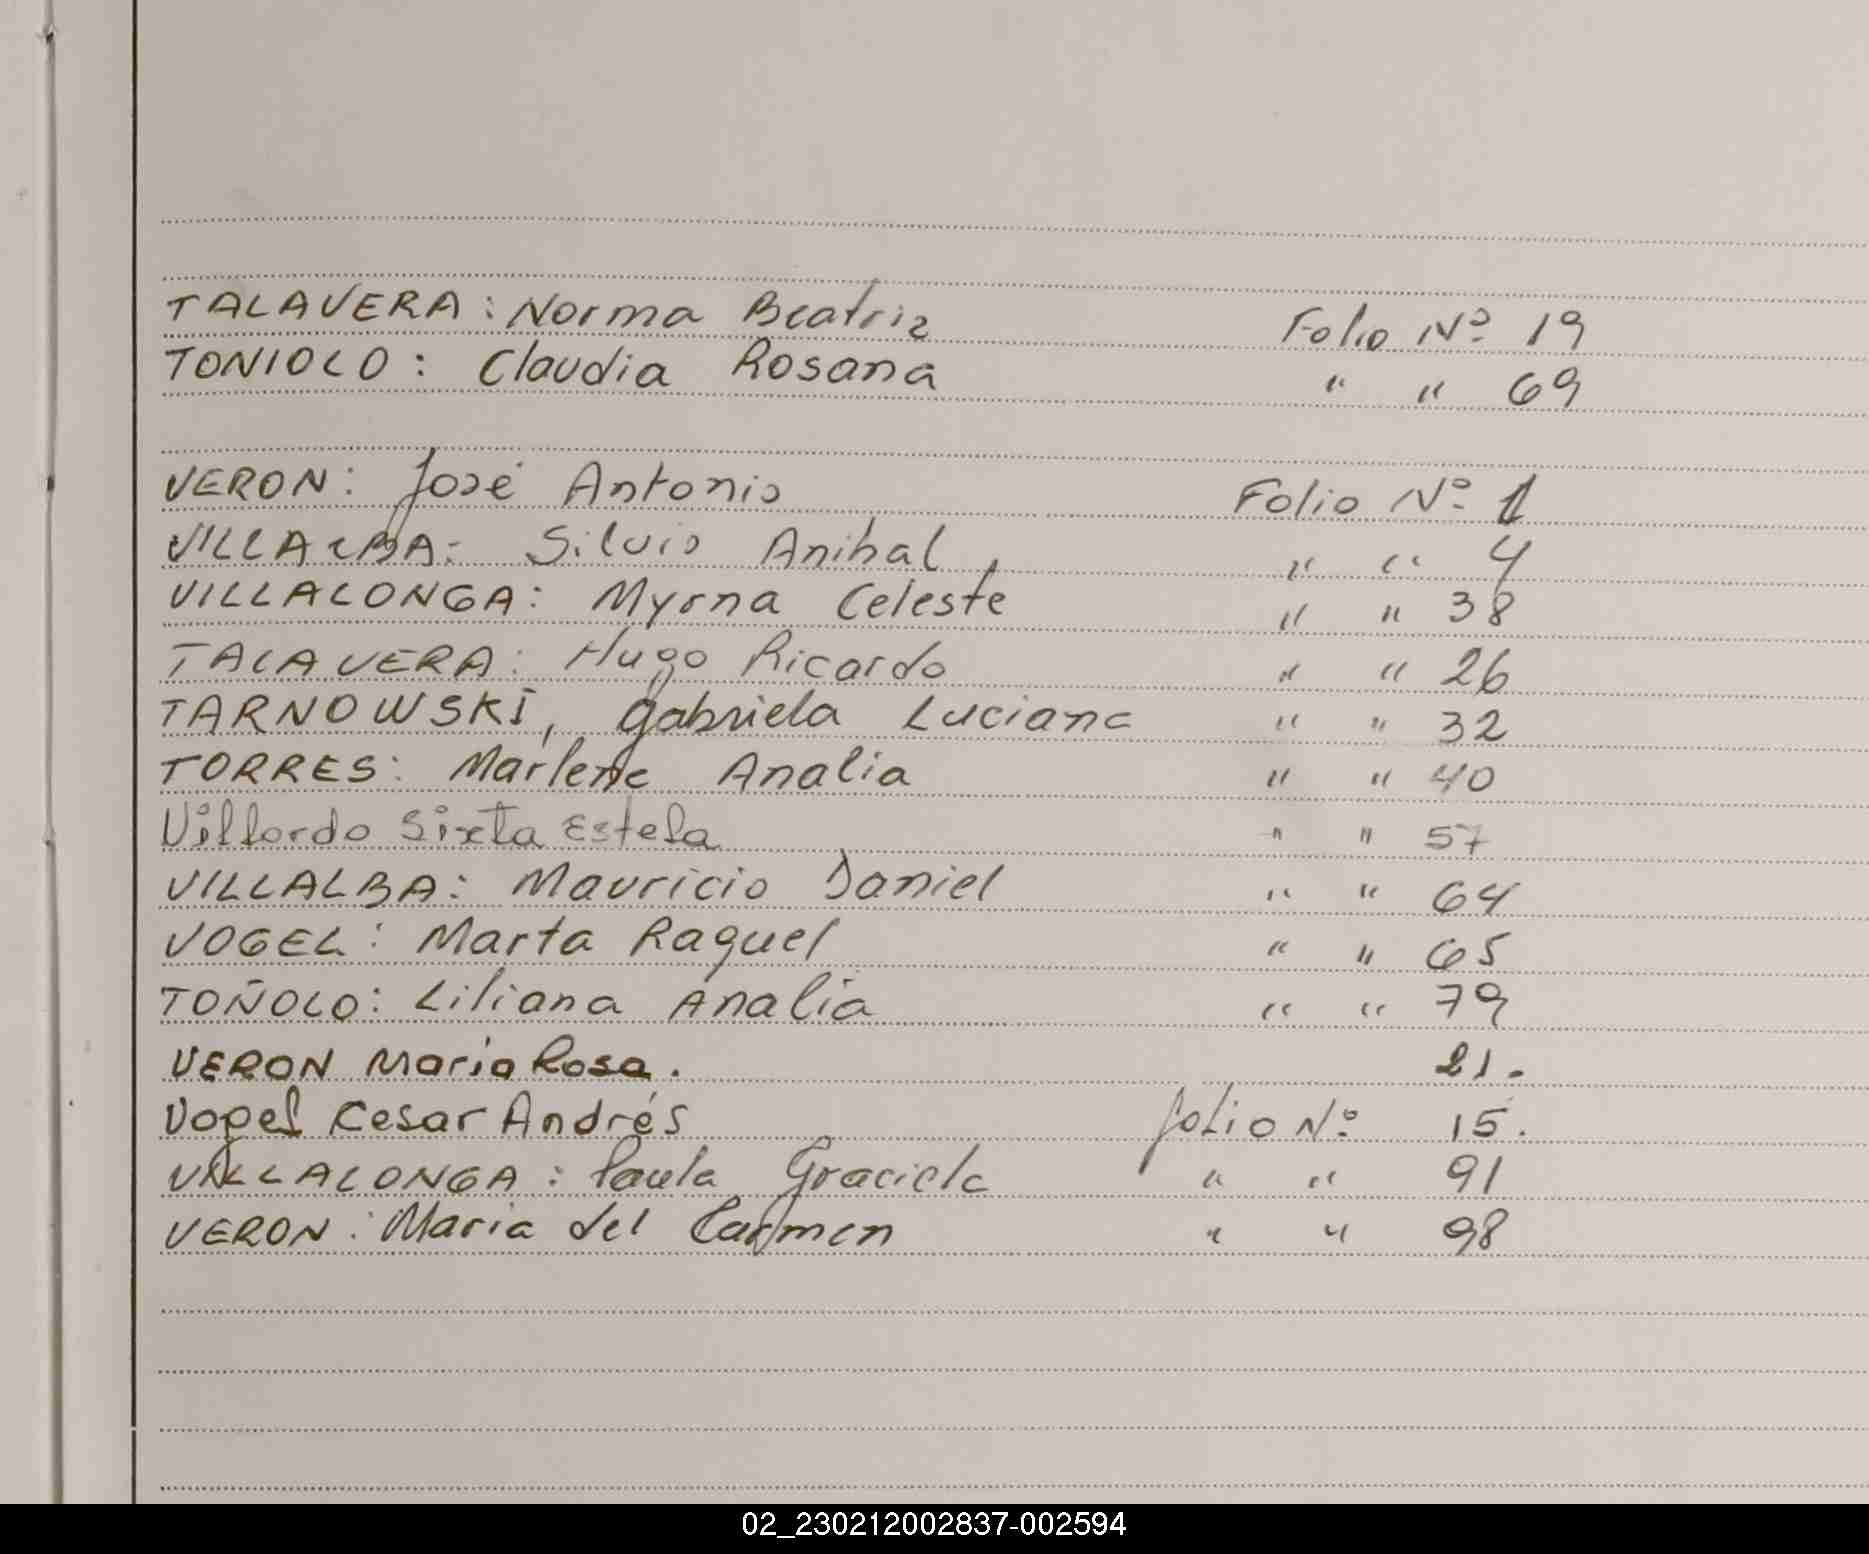 TALAVERA: Norma Beatriz Folio Nº 19
TONIOLO: Claudia Rosana " " 69
VERON: José Antonio Folio Nº 1
VILLALBA: Silvio Anibal " " 4
VILLALONGA: Myrna Celeste " " 38
TALAVERA: Hugo Ricardo " " 26
TARNOWSKI, Gabriela Luciana " " 32
TORRES: Marlene Analia " " 40
Villordo Sixta Estela " " 57
VILLALBA: Mauricio Daniel " " 64
VOGEL: Marta Raquel " " 65
TOÑOLO: Liliana Analia " " 79
VERON Maria Rosa. 21.
Vogel Cesar Andrés folio Nº 15.
VILLALONGA: Paula Graciela " " 91
VERON: Maria del Carmen " " 98
02_230212002837-002594